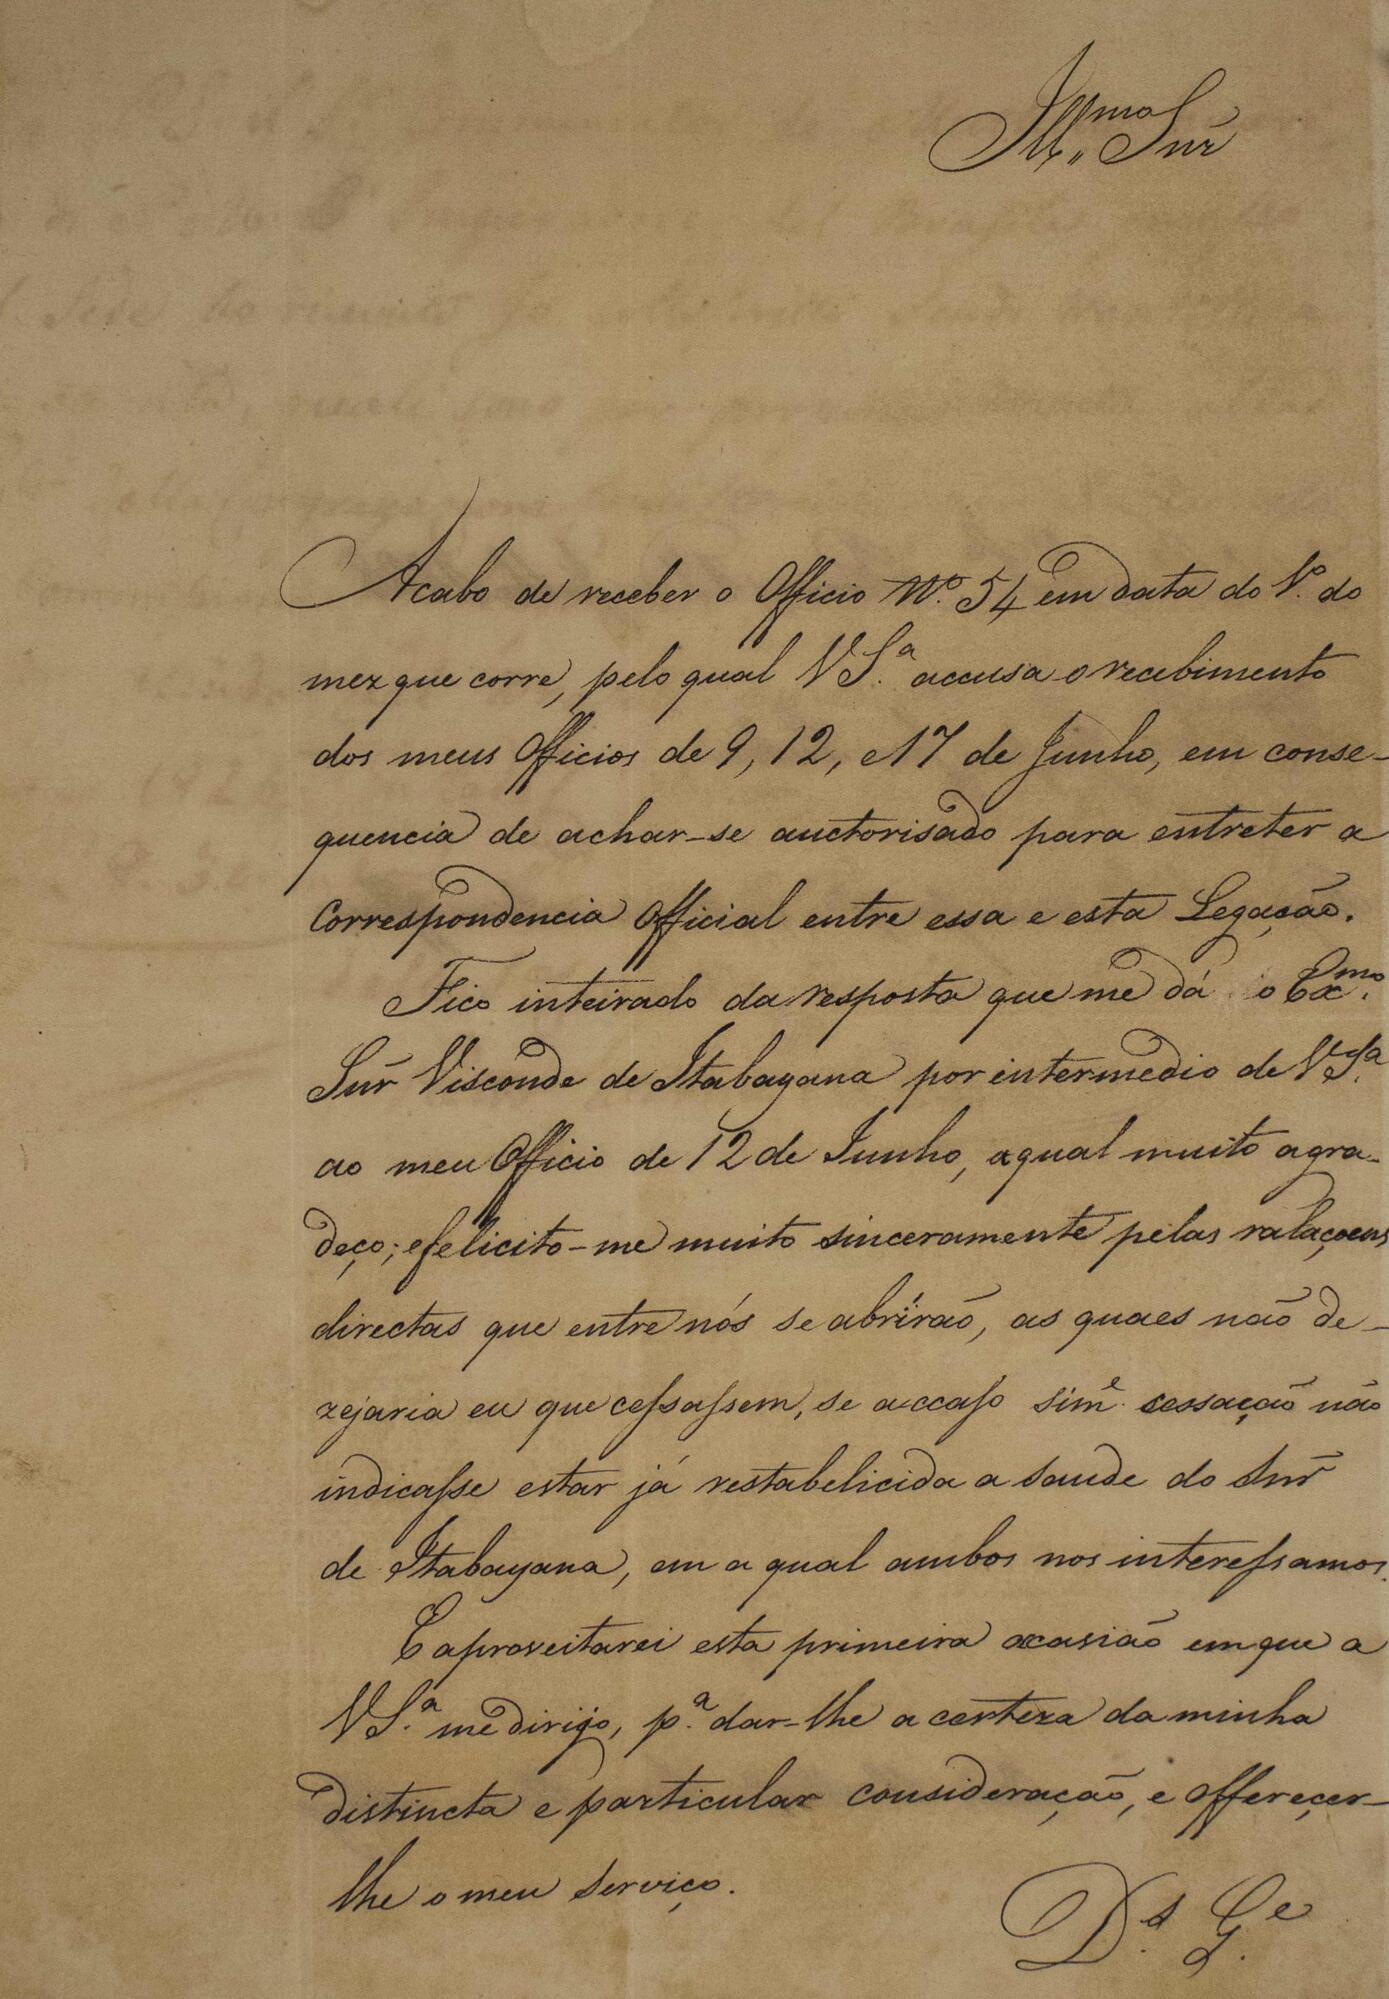 Ill.mo Snr
Acabo de receber o Officio Nº. 54 em data do 1º. do
mez que corre, pelo qual V S.ª accusa o recebimento
dos meus Officios de 9, 12, e 17 de Junho, em conse-
quencia de achar-se auctorisado para entreter a
Correspondencia Official entre essa e esta Legação.
Fico inteirado da resposta que me dá o Exmo.
Snr Visconde de Itabayana por intermedio de V Sª.
ao meu Officio de 12 de Junho, a qual muito agra-
deço; e felicito-me muito sinceramente pelas ralaçoens
directas que entre nós se abrírão, as quaes não de-
zejaria eu que cessassem, se accaso sim.e cessação não
indicasse estar já restabelicida a saude do Snr
de Itabayana, em a qual ambos nos interessamos.
E aproveitarei esta primeira occasião em que a
V S.ª me dirijo, p.ª dar-lhe a certeza da minha
distincta e particular consideração, e offereçer-
lhe o meu serviço.
D.s G.e